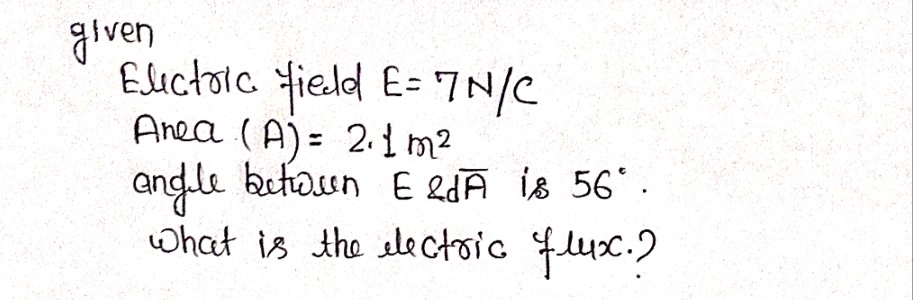 given
Electric field E = 7 N/C
Area (A) = 2.1 m²
angle between E & dA̅ is 56°.
What is the electric flux.?